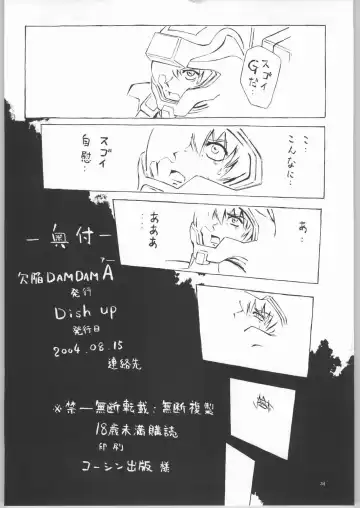 スゴイ
Gだ…
こ…
こんなに…
スゴイ
自慰…
あ…
あああ
―奥付―
アー
欠陥DAMDAMA
発行
Dish up
発行日
2004.08.15
連絡先
※禁―無断転載・無断複製
18歳未満購読
印刷
コーシン出版 様